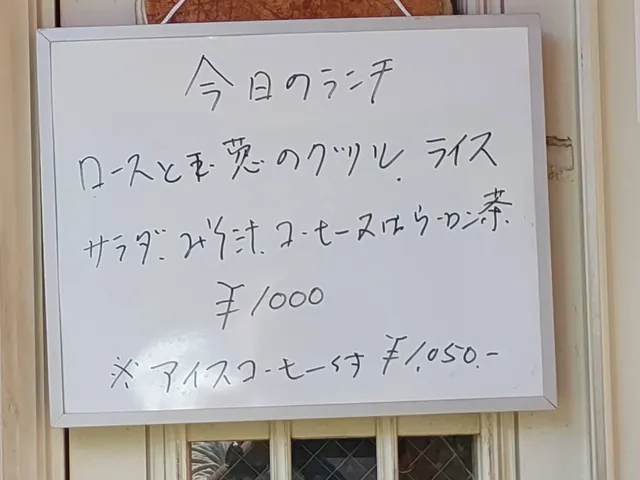 今日のランチ
ロースと玉葱のグツル、ライス
サラダ、みそ汁、コーヒー又はウーロン茶
¥1000
※アイスコーヒーは ¥1,050.-